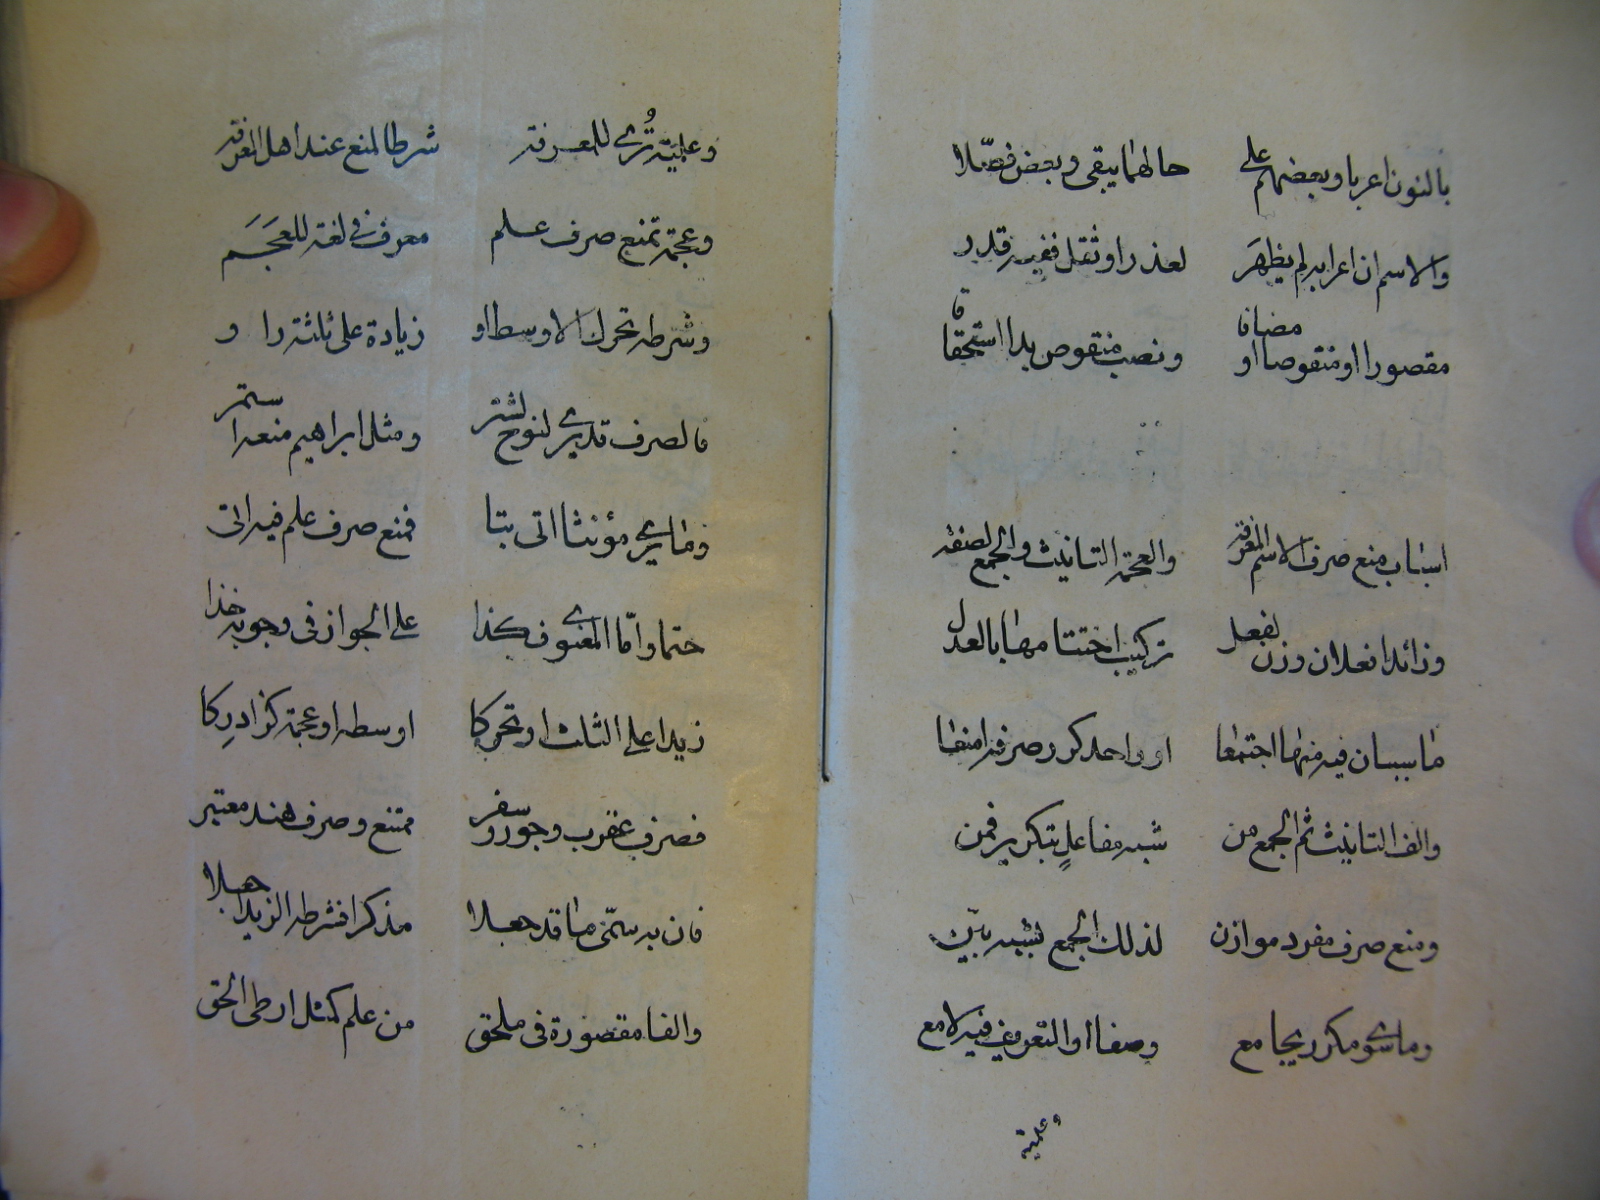 بالنون اعربا وبعضهم على حالهما يبقى وبعض فصّلا
والاسم ان اعرابه لم يظهرَ لعذر او ثقل ففيه قدر
مقصورا او منقوصا او مضافا ونصب منقوص بدا استحقاقا
اسباب منع صرف الاسم المعرفة والعجمة التانيث والجمع الصفة
وزائدا فعلان وزن لفعل تركيب اختتامها بالعدل
ما سببان فيه منها اجتمعا او واحد كرر صرفه امنعا
والف التانيث ثم الجمع من شبه مفاعلٍ بتكرير قمن
ومنع صرف مفرد موازن لذلك الجمع لشبه بيّن
وما سوى مكرر يجامع وصفا او التعريف فيه لامع
وعلمية
وعلميّة تُرى للمعرفة شرطا لمنع عند اهل المعرفة
وعجمة تمنع صرف علم معرف في لغة للعجَمَ
وشرطه تحرك الاوسط او زيادة على ثلثة راو
فالصرف قد يرى لنوح لشتر ومثل ابراهيم منعه استمر
وما يرى مؤنثا اتى بتا فمنع صرف علم فيه اتى
حتما واما المعنوى فكذا على الجواز فى وجوبه خذا
زيدا على الثلث او تحركا اوسطه او عجمة كزا ادرِكا
فصرف عقرب وجور وسقر ممتنع وصرف هند معتبر
فان به سمّى ما قد جعلا مذكرا فشرطه الزيد اجعلا
والفا مقصورة فى ملحق من علم كمثل ارطى الحق